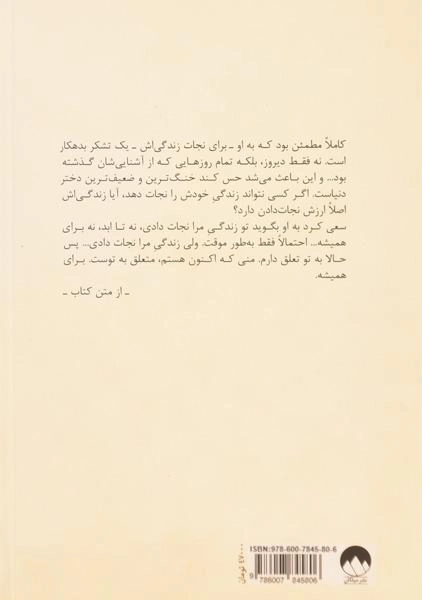 کاملاً مطمئن بود که به او ـ برای نجات زندگی‌اش ـ یک تشکر بدهکار
است. نه فقط دیروز، بلکه تمام روزهایی که از آشنایی‌شان گذشته
بود... و این باعث می‌شد حس کند خنگ‌ترین و ضعیف‌ترین دختر
دنیاست. اگر کسی نتواند زندگیِ خودش را نجات دهد، آیا زندگی‌اش
اصلاً ارزش نجات‌دادن دارد؟
سعی کرد به او بگوید تو زندگی مرا نجات دادی، نه تا ابد، نه برای
همیشه... احتمالاً فقط به‌طور موقت. ولی زندگیِ مرا نجات دادی... پس
حالا به تو تعلق دارم. منی که اکنون هستم، متعلق به توست. برای
همیشه.
ـ از متن کتاب ـ
ISBN: 978-600-7845-80-6
9 786007 845806
۴۷۰۰۰ تومان